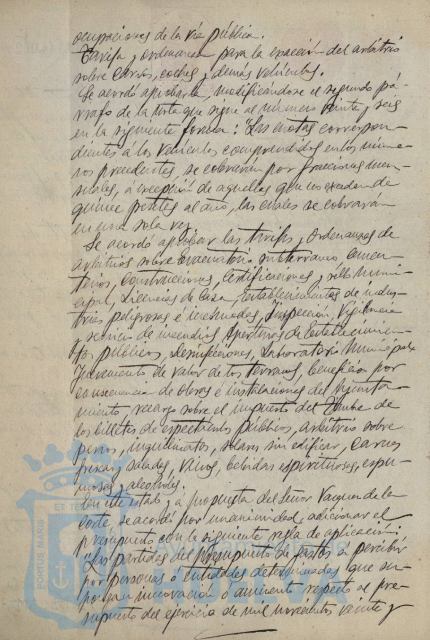 ocupaciones de la vía pública.
Tarifa y ordenanza para la exacción del arbitrio
sobre carros, coches y demás vehículos.
Se acordó aprobarla, modificándose el segundo pá-
rrafo de la nota que sigue al número veinte y seis
en la siguiente forma: "Las cuotas correspon-
dientes á los vehículos comprendidos en los núme-
ros precedentes, se cobrarán por fracciones men-
suales, á excepción de aquellas que no excedan de
quince pesetas al año, las cuales se cobrarán
en una sola vez.
Se acordó aprobar las tarifas y ordenanzas de
arbitrios sobre subterráneo, cemen-
terios, construcciones, certificaciones y sello muni-
cipal, Licencias de Caza, establecimientos de indus-
trias peligrosas é incómodas, Inspección, Vigilancia
y servicio de incendios, Apertura de Establecimien-
tos públicos, desinfecciones, Laboratorio Municipal,
Incremento de valor de los terrenos, beneficios por
consecuencia de obras é instalaciones del Ayunta-
miento, recargo sobre el impuesto del Timbre de
los billetes de espectáculos públicos, arbitrio sobre
perros, inquilinatos, solares sin edificar, carnes
frescas, saladas, Vinos, bebidas espirituosas, espu-
mosas y alcoholes.
En este estado, y á propuesta del señor Vazquez de la
Corte, se acordó por unanimidad, adicionar el
presupuesto con la siguiente regla de aplicación:
"Las partidas del Presupuesto de gastos á percibir
por personas ó entidades determinadas que su-
pongan innovación ó aumento respecto al pre-
supuesto del ejercicio de mil novecientos veinte y
PORTUS MARIS ET TERRAE